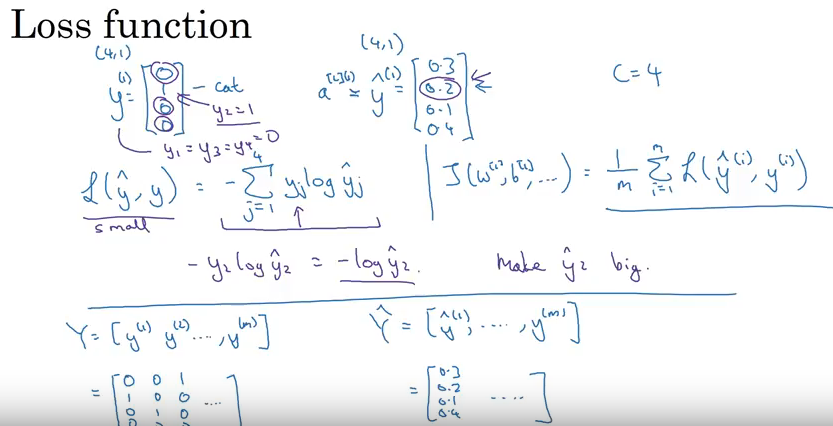 Loss function
(4,1)
y⁽¹⁾ = [0 1 0 0] - cat
y₂ = 1
y₁ = y₃ = y₄ = 0
(4,1)
a^[L](1) = ŷ⁽¹⁾ = [0.3 0.2 0.1 0.4]
C = 4
ℒ(ŷ, y) = - Σ_{j=1}^{4} y_j log ŷ_j
small
J(w^[1], b^[1], ...) = 1/m Σ_{i=1}^{m} ℒ(ŷ⁽ⁱ⁾, y⁽ⁱ⁾)
- y₂ log ŷ₂ = - log ŷ₂. Make ŷ₂ big.
Y = [y⁽¹⁾ y⁽²⁾ ..., y⁽ᵐ⁾]
Ŷ = [ŷ⁽¹⁾, ...., y⁽ᵐ⁾]
= [0 0 1
1 0 0 ...
0 1 0
= [0.3
0.2
0.1 ....
0.4]